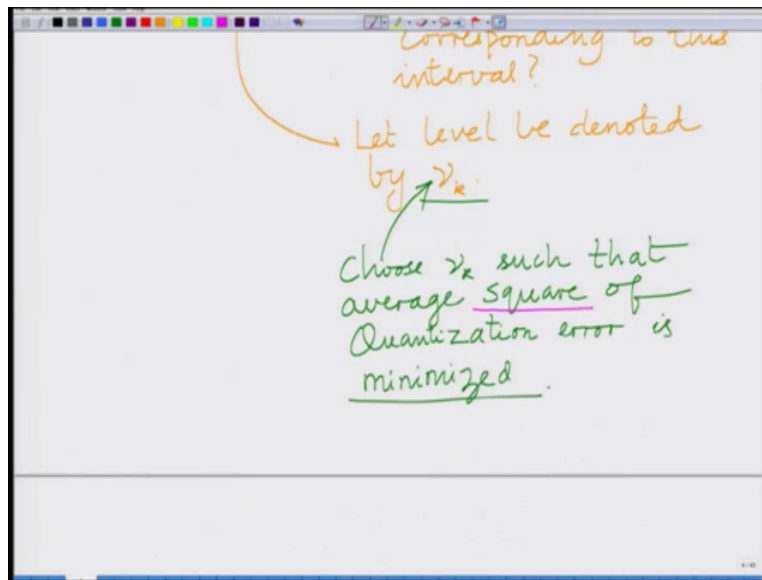 corresponding to this
interval?
Let level be denoted
by νₖ.
Choose νₖ such that
average square of
Quantization error is
minimized.